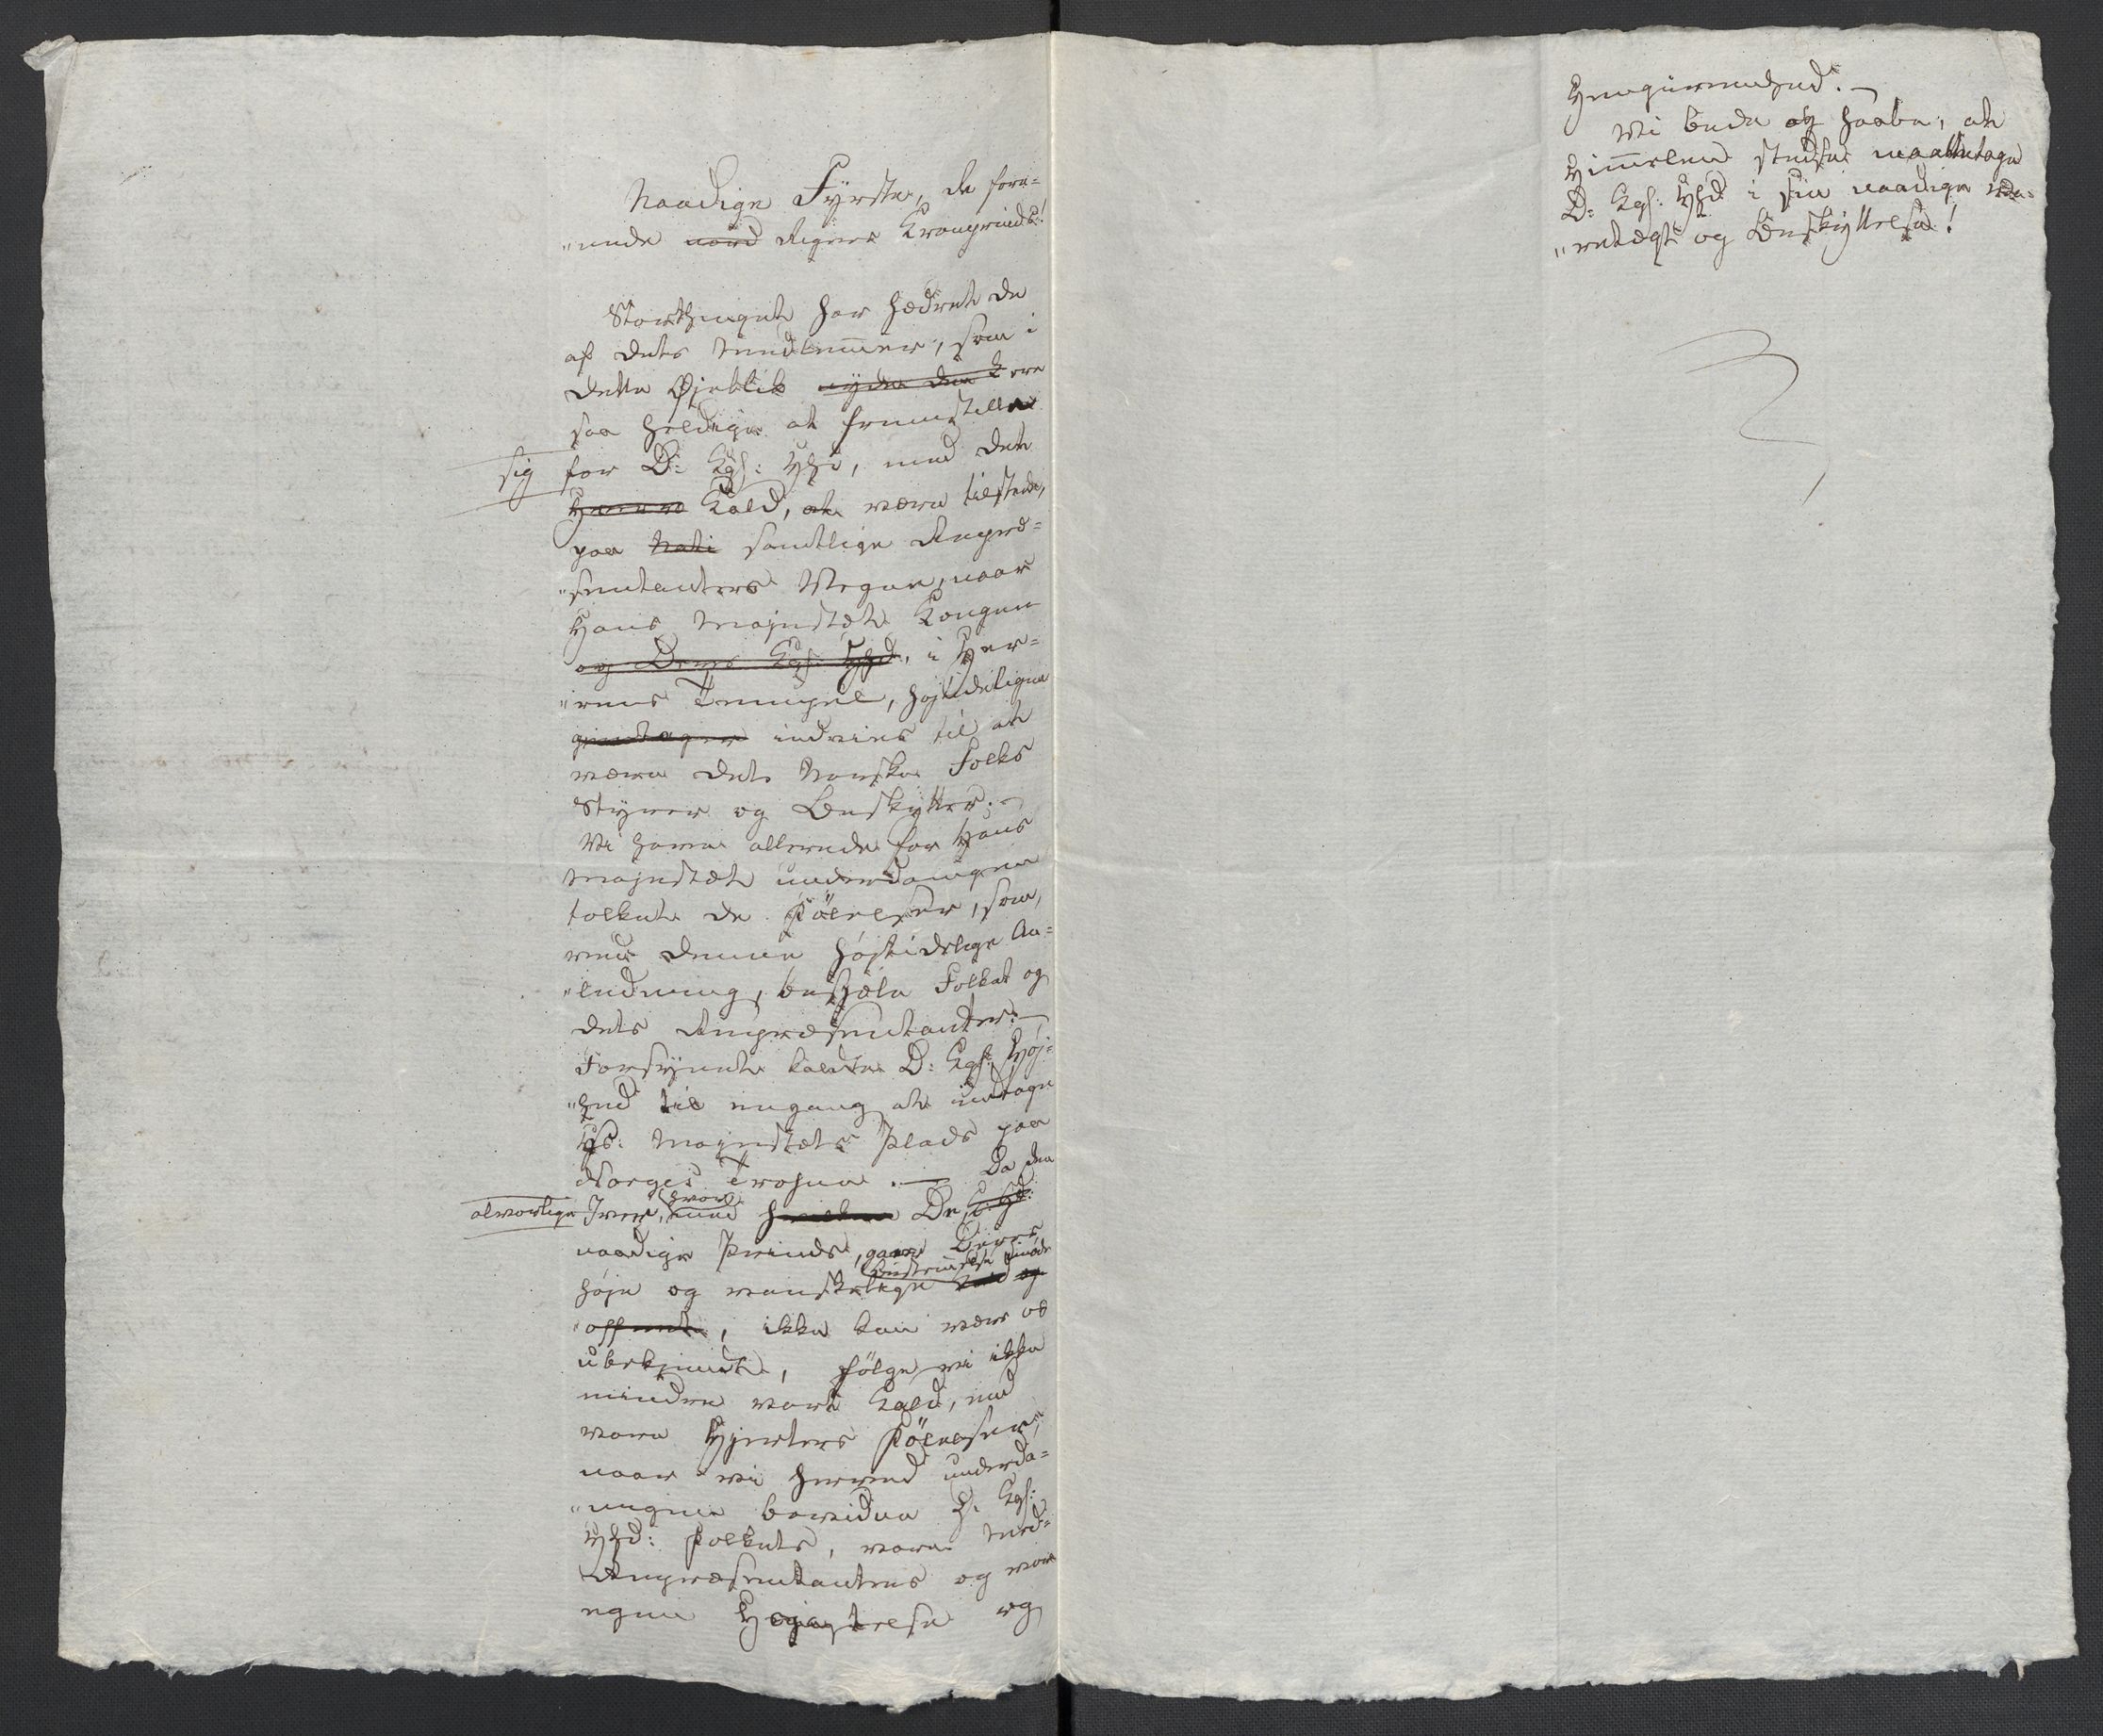 Naadige Fyrste, de fore-
„nede nord Rigers Kronprinds!
Storthinget har hædret de
af dets Medlemmer, som i
dette Øjeblik nyde den ere
saa heldige at fremstille
sig for D: Kgl: Hhd, med det
Kald, at være tilstede,
paa Nati samtlige Repræ-
„sentanters Vegne, naar
Hans Majestæt Kongen
og Deres Kgl: Hhd, i Her-
„rens Tempel, højtideligen
indvies til at
være det Norske Folks
Styrer og Beskytter. -
Vi have allerede for Hans
Majestæt underdanigen
tolket de Følelser, som,
ved denne højtidelige An-
„ledning, besjæle Folket og
dets Repræsentanter. -
Forsynet kaldte D: Kgl: Høj-
„hed til engang at indtage
Hs: Majestæts Plads paa
Norges Trohne. - Da den
alvorlige Iver, hvormed De K: H:
naadige Prinds, gaaer Deres
høje og vanskelige Bestemmelse imøde
, ikke kan være os
ubekjendt, følge vi ikke
mindre vort Kald, end
vore Hjerters Følelser,
naar vi herved underda-
„nigen bevidne D. Kgl:
Hhd: Folkets, vore Med-
Repræsentanters og vor
egen Højagtelse og
Hengivenhed. -
Vi bede og haabe, at
Himmelen stedse vaatte tage
D: Kgl: Hhd i sin naadige Va-
„retægt og Beskyttelse!